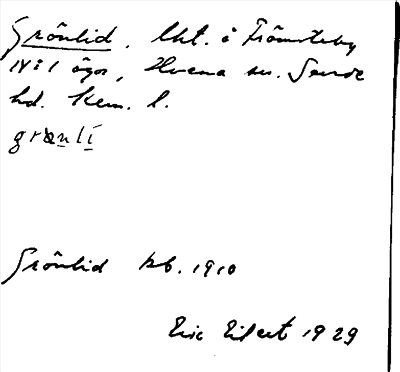 Grönlid. Lht. i Frömsteby
N:1 ägor, Hvena sn. Sevede
hd. Kalm. l.
grønli
Grönlid kb. 1910
Eric Eilert 1929